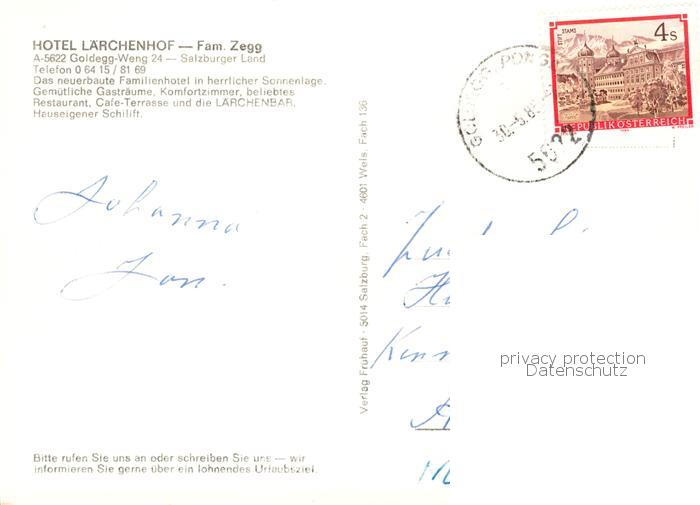 HOTEL LÄRCHENHOF — Fam. Zegg
A-5622 Goldegg-Weng 24 — Salzburger Land
Telefon 0 64 15 / 81 69
Das neuerbaute Familienhotel in herrlicher Sonnenlage.
Gemütliche Gasträume, Komfortzimmer, beliebtes
Restaurant, Cafe-Terrasse und die LÄRCHENBAR.
Hauseigener Schilift.
Johanna
Jon.
Bitte rufen Sie uns an oder schreiben Sie uns — wir
informieren Sie gerne über ein lohnendes Urlaubsziel.
Verlag Frühauf · 5014 Salzburg, Fach 2 · 4601 Wels, Fach 136
5622
STIFT STAMS
4s
REPUBLIK ÖSTERREICH
privacy protection
Datenschutz